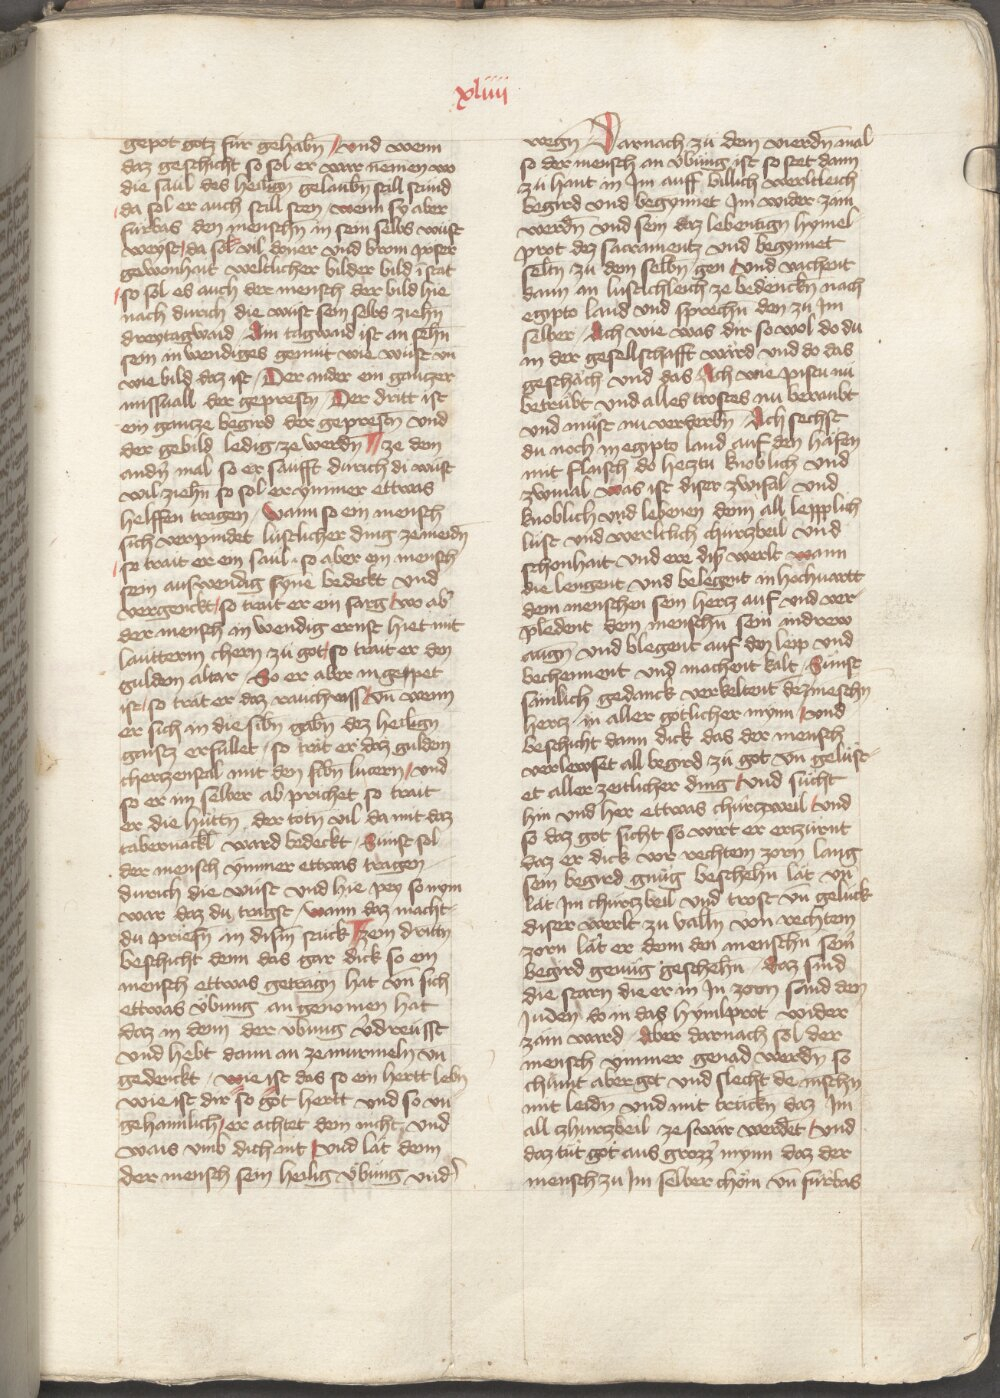 xliiii
gepot gotz für gehabn / Und wenn
daz geschicht so sol er war nemen wo
die saul des heilign gelaubn still stund
da sol er auch still sten / wenn sy aber
fürbas den menschn in sein selbs wüst
weyst / da sol vil doner und krom pöser
gewonhait weltlicher bilder bild istat
so sol es auch der mensch der bild hie
nach durich die wüst sein selbs ziehn
dreytagwaid / Ain tagwaid ist an sehn
sein in wendiges gemüt wie wüst vn
wie bild daz ist / Der ander ein gantzer
missuall der geprestn / Der dritt ist
ein gantze begird der geprestn und
der gebild ledig ze werdn / ze dem
andn mal so er saufft durich di wüst
wil ziehn so sol er ymmer ettwas
helffen tragen / Wann so ein mensch
sich verpindet lustlicher ding ze meidn
so trait er ein saul / so aber ein mensch
sein auswendig synne bedeckt und
vergenckt / so trait er ein sarg / wo ab
der mensch in wendig ernst hiet mit
lautterm chern zu got / so trait er den
guldem altar / So er aber in gepet
ist / so trait er daz rauchvass / vn wenn
er sich in die sibn gabn dez heilign
gaistz erfullet / so trait er daz guldem
chertzenstal mit den sibn lucern / und
so er im selber ab prichet so trait
er die hüttn der totn vil da mit daz
tabernackl ward bedeckt / Sunst sol
der mensch ymmer ettwas tragen
durich die wüst und hie pey so nym
war daz du tragst / wann daz macht
du priefn in disn stuck / zem drittn
beschicht denn das gar dick so ein
mensch ettwas getragn hat vn sich
ettwas übung an genomen hat
daz in denn der übung vdreusst
und hebt dann an ze murmeln vn
gedenckt / wie ist das so ein hertt lebn
wie ist dir so got hertt und so vn
gehaimlich / er achtet dein nicht / und
wais umb dich nit / Und lät denn
der mensch sein heilig übung und
wegn / Darnach zu dem vierdn mal
so der mensch an übung ist so stet dann
zu hant in Im auff billich werltleich
begird und begynnet Im wider zäm
werdn und sein daz lebentign hymel
prot dez sacramentz und begynnet
seltn zu dem selbn gen / Und vachent
dann an lustchleich ze bedenckn nach
egipto land und sprechn denn zu Im
selber / Ach wie was dir so wol do du
in der gesellschafft wärd und do das
geschäch und das / Ach wie pistu nu
betrübt und alles trostes nu beraubt
und müst nu verderbn / Ach sechst
du noch in egipto land auf den häfen
mit flaisch do heztu knoblich und
zwiual / was ist diser zwifal / und
knoblich und lebenen denn all leypplich
lust und werltlich churtzbeil und
schonhait und ere diser werlt / wann
die lengent und belegent in hochuartt
dem menschen sein hertz auf und ver
pledent dem menschn sein indrew
augn und blegent auf den leip und
bechennent und machent kalt / Sunst
sämlich gedanck verkeltent dez menschn
hertz in aller götlicher mynn / und
beschicht dann dick das der mensch
verlewset all begird zu got vn gelüst
et aller zeitlicher ding / Und sücht
hin und her ettwas churtzweil / und
so daz got sicht so wirt er ertzürnt
daz er dick vor rechtem zorn lang
sein begird gnüg beschehn lät vn
lät Im churtzbeil und trost vn gelück
diser werlt zu valln von rechtem
zorn lät er denn den menschn sein
begird genüg geschehn / daz sind
die starn die er in In zorn sand den
Juden do in das hymlprot wider
zäm ward / Aber darnach sol der
mensch ymmer genad werdn so
chümt aber got und slecht den mschn
mit leidn und mit trückn daz Im
all churtzbeil ze swär werdet / und
daz tüt got aus grozzer mynn daz der
mensch zu Im selber chöm vn fürbas